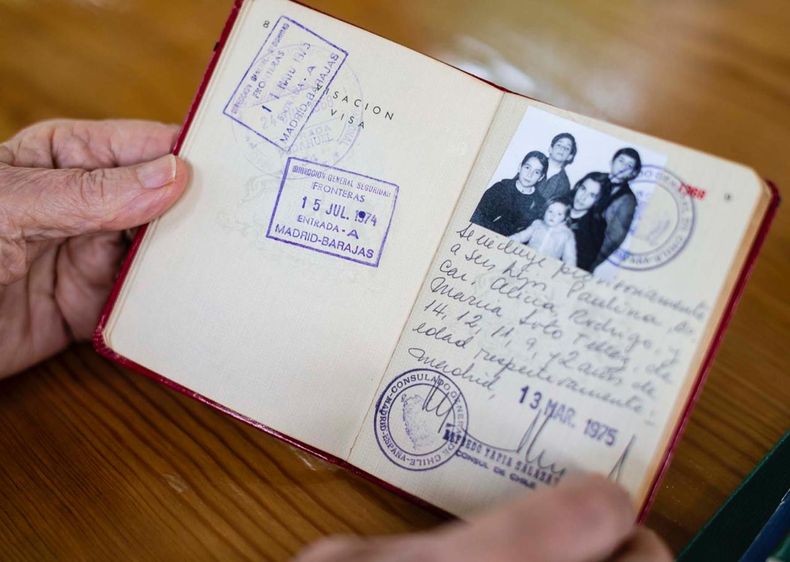 8
DIRECCION GENERAL SEGURIDAD
FRONTERAS
1975
ENTRADA-A
MADRID-BARAJAS
ISACION
VISA
DIRECCION GENERAL SEGURIDAD
FRONTERAS
15 JUL. 1974
ENTRADA-A
MADRID-BARAJAS
Se incluye provisionalmente
a sus hijos Paulina, Os-
car, Alicia, Rodrigo, y
Maria Soto Tellez, de
14, 12, 11, 9, y 2 años de
edad respectivamente.-
Madrid,
13 MAR. 1975
CONSULADO GENERAL DE CHILE
MADRID-ESPAÑA
ALFREDO TAPIA SALAZAR
CONSUL DE CHILE